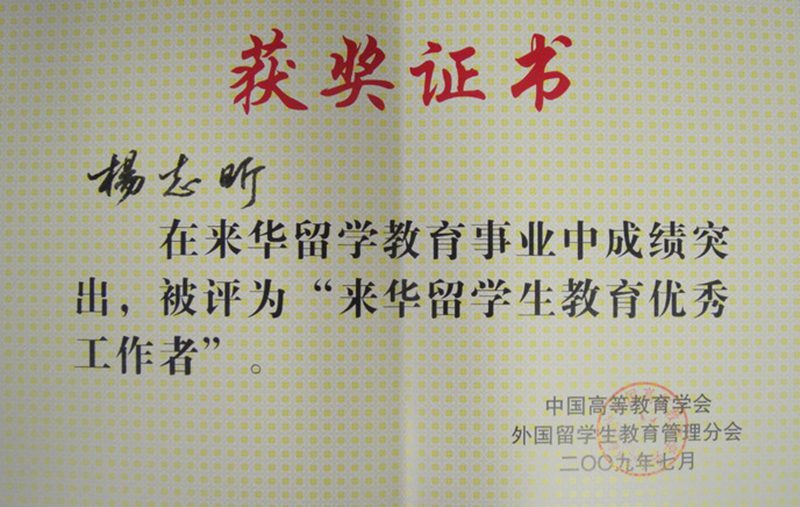 获奖证书
楊志昕
在来华留学教育事业中成绩突
出，被评为“来华留学生教育优秀
工作者”。
中国高等教育学会
外国留学生教育管理分会
二〇〇九年七月